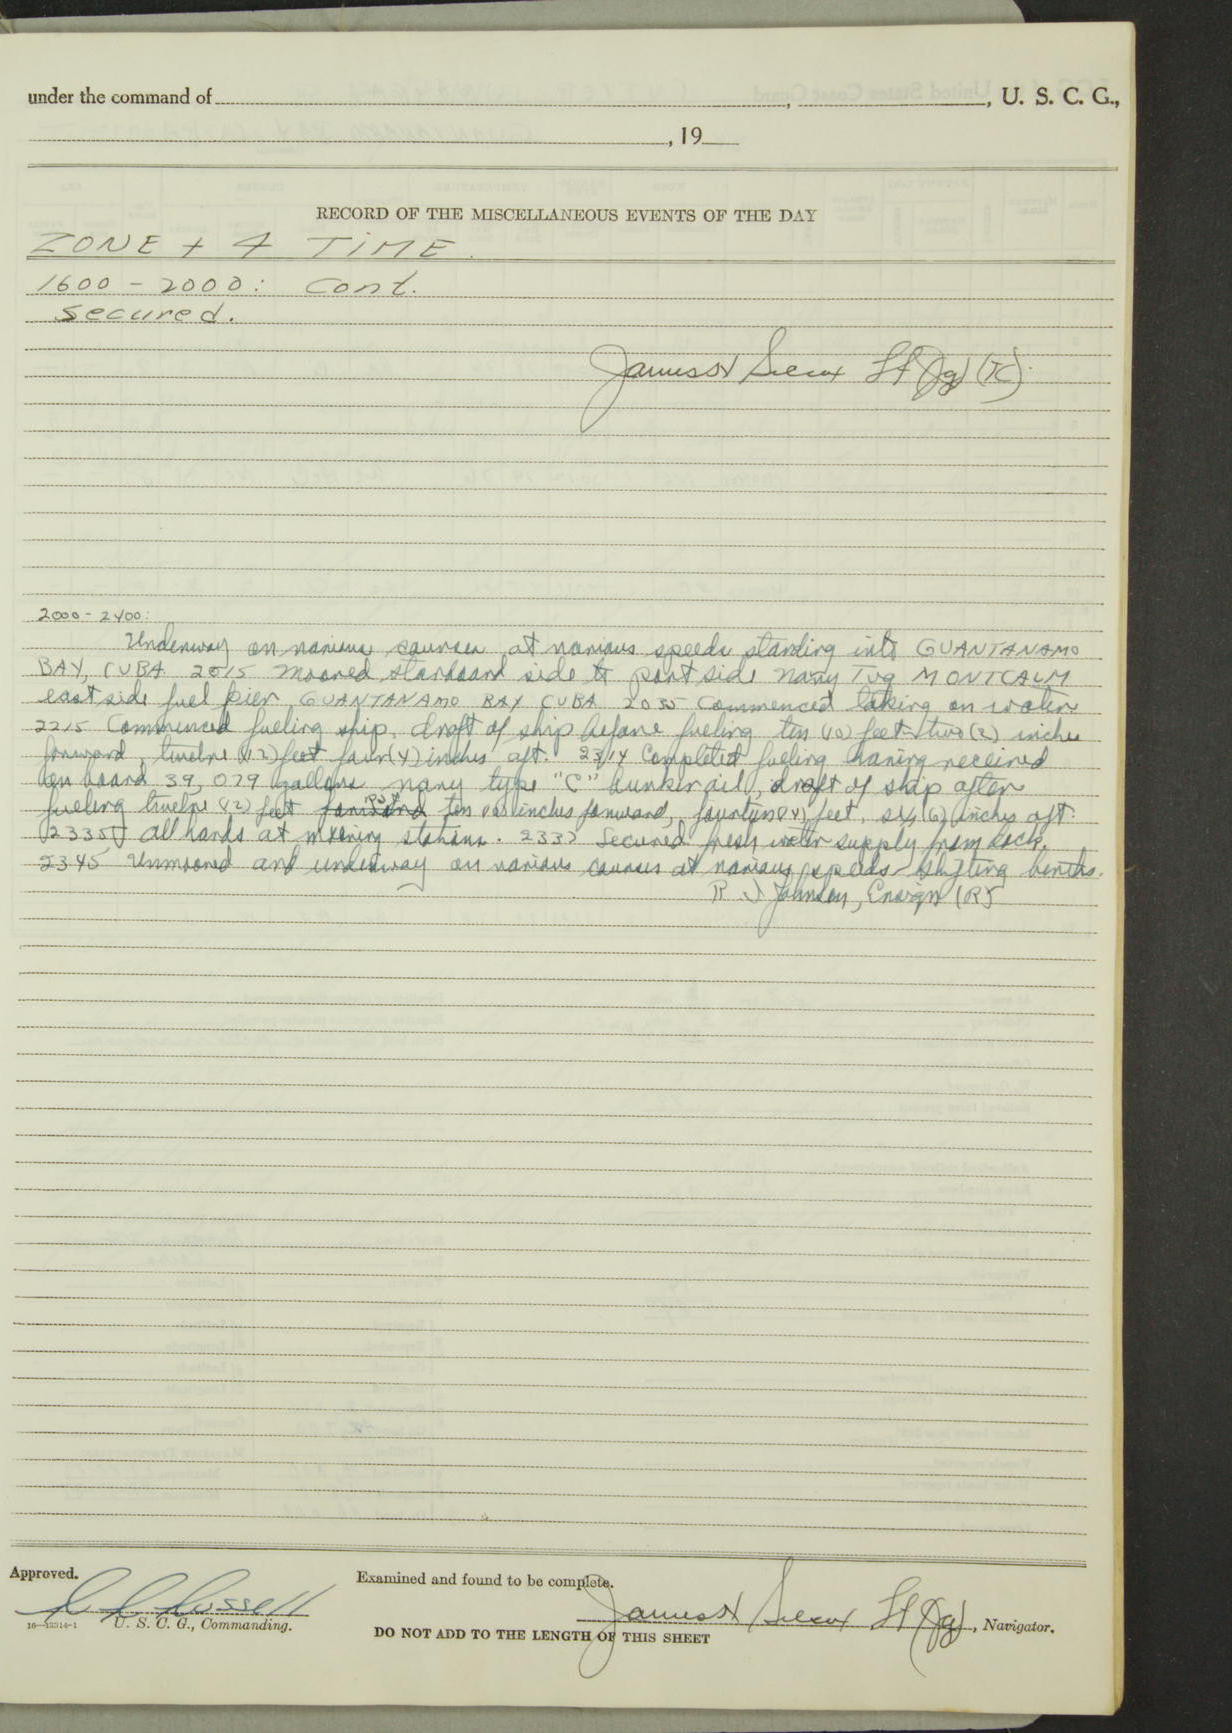 under the command of , , U. S. C. G.,
, 19
RECORD OF THE MISCELLANEOUS EVENTS OF THE DAY
ZONE + 4 TIME.
1600 - 2000: Cont.
secured.
James Lt (Jg) (TC)
2000 - 2400:
Underway on various courses at various speeds standing into GUANTANAMO
BAY, CUBA 2015 Moored starboard side to port side Navy Tug MONTCALM
east side fuel pier GUANTANAMO BAY CUBA 2035 Commenced taking on water
2215 Commenced fueling ship. draft of ship before fueling ten (10) feet two (2) inches
forward, twelve (12) feet four (4) inches aft. 2314 Completed fueling having received
on board 39,079 gallons navy type "C" bunker oil, draft of ship after
fueling twelve (12) feet ten (10) inches forward, fourteen (14) feet, six (6) inches aft.
2335 all hands at mooring stations. 2337 Secured fresh water supply from dock.
2345 Unmoored and underway on various courses at various speeds shifting berths.
R J Johnson, Ensign (R)
Approved.
Examined and found to be complete.
Russell
James Lt (Jg), Navigator.
16—13314-1 U. S. C. G., Commanding.
DO NOT ADD TO THE LENGTH OF THIS SHEET